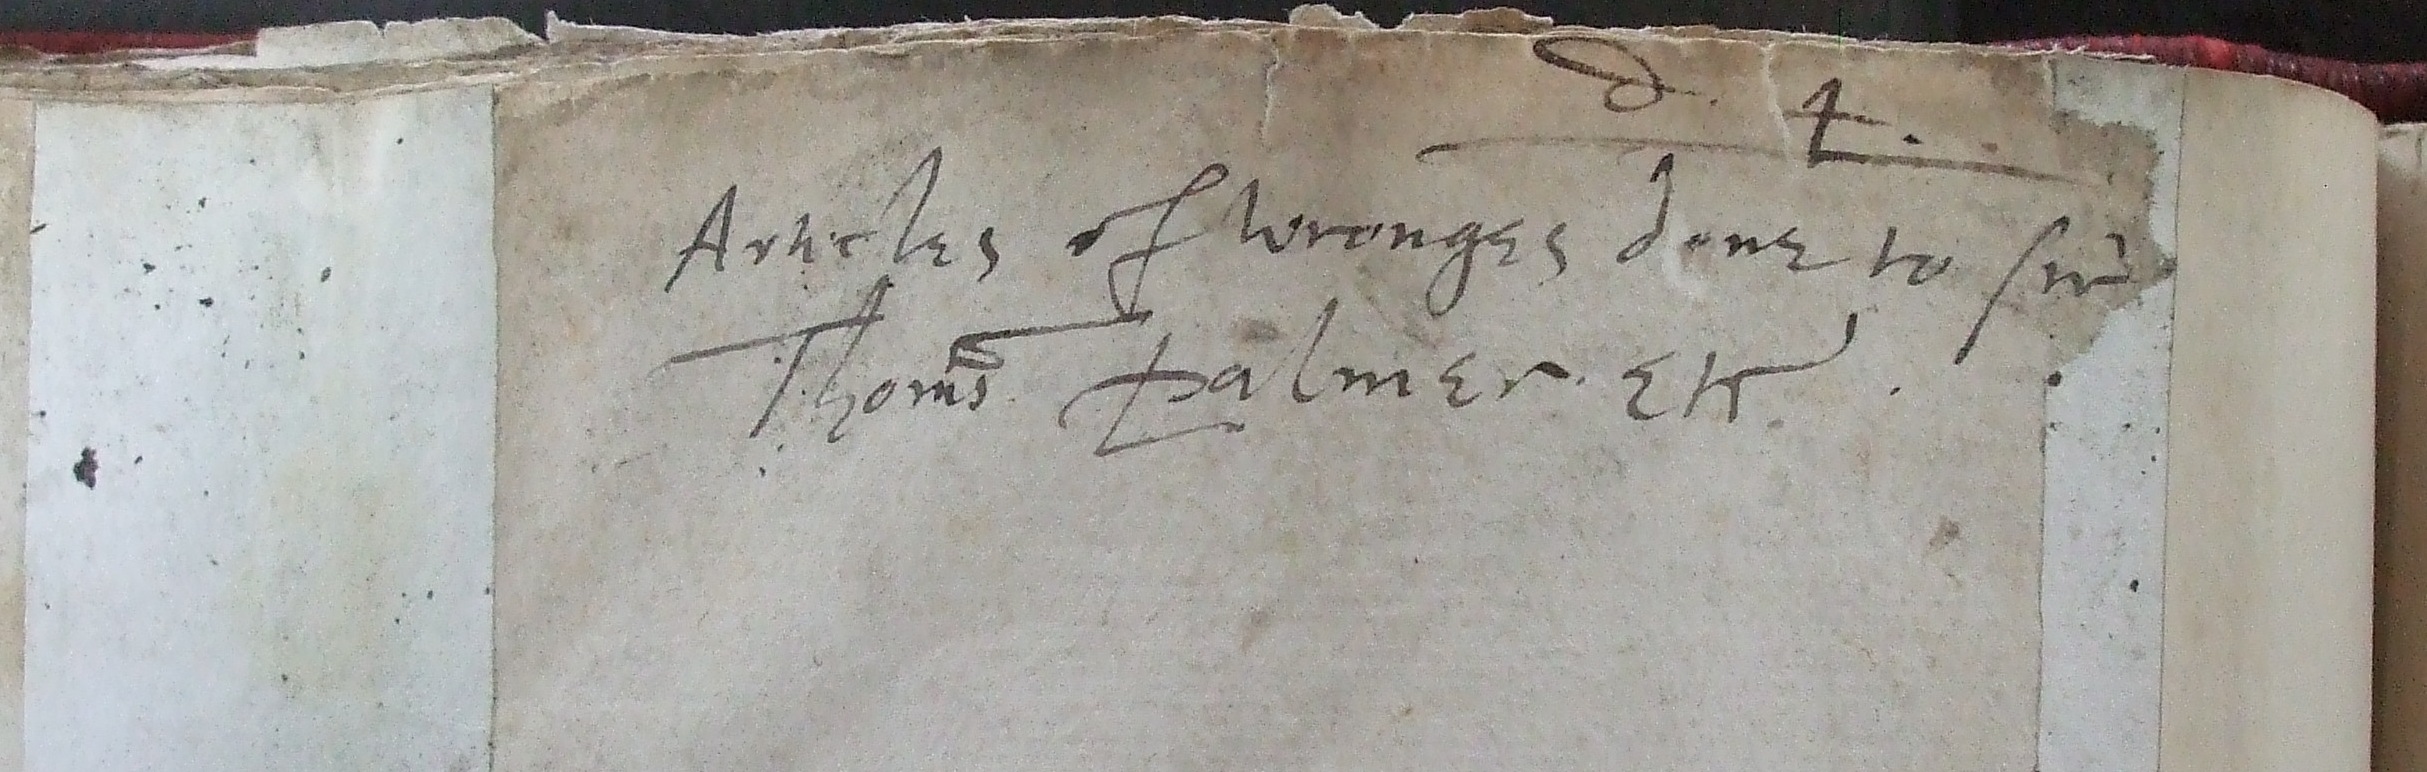 d. 4.
Articles of wronges done to sir
Thoms palmer. etc.